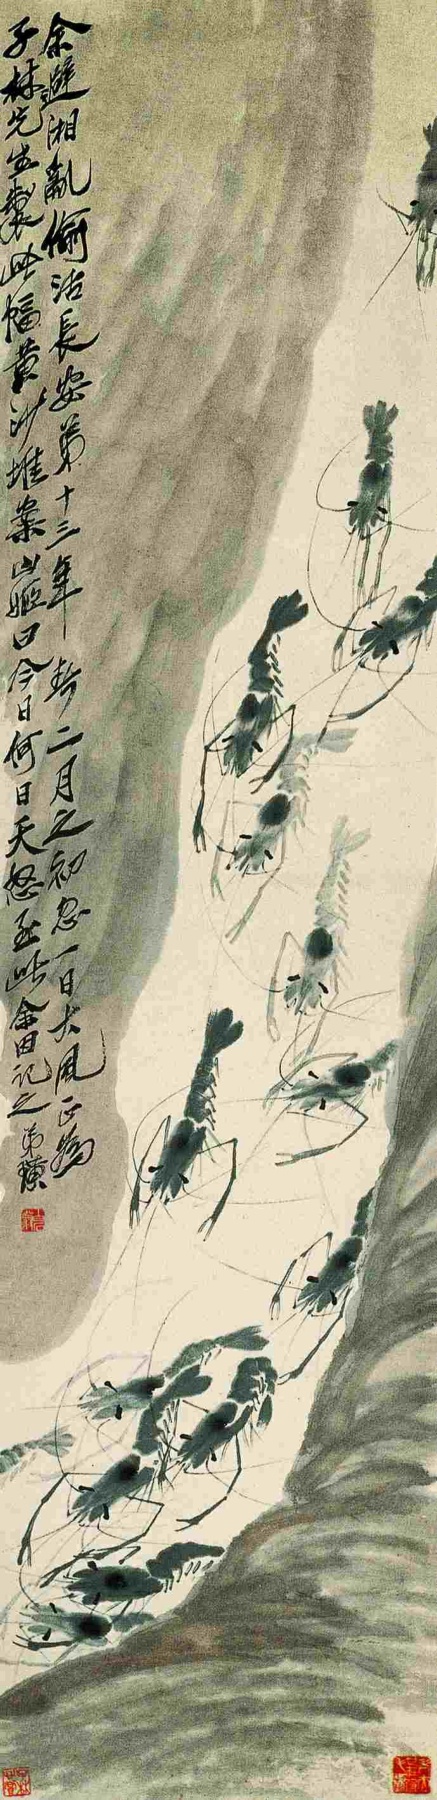 余避湘亂偷活長安第十三年時二月之初忽一日大風正為
子林先生製此幅黃沙堆案山姬曰今日何日天怒至此余因記之弟璜